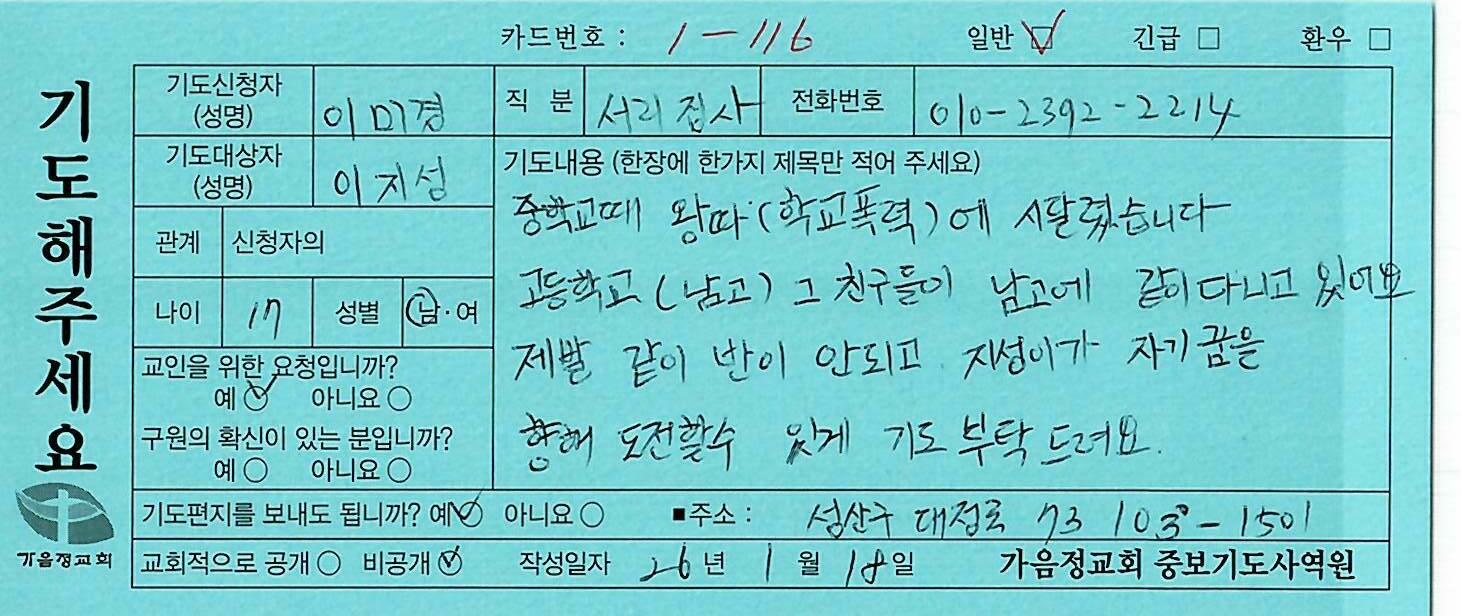 카드번호 : 1-116 일반 ☑ 긴급 □ 환우 □
기도해주세요
기도신청자 (성명) 이미경 직 분 서리집사 전화번호 010-2392-2214
기도대상자 (성명) 이지성
기도내용 (한장에 한가지 제목만 적어 주세요)
중학교때 왕따(학교폭력)에 시달렸습니다
고등학교(남고) 그 친구들이 남고에 같이다니고 있어요
제발 같이 반이 안되고 지성이가 자기꿈을
향해 도전할수 있게 기도 부탁 드려요.
관계 신청자의
나이 17 성별 남·여
교인을 위한 요청입니까?
예 ○ 아니요 ○
구원의 확신이 있는 분입니까?
예 ○ 아니요 ○
기도편지를 보내도 됩니까? 예 ○ 아니요 ○ ■주소 : 성산구 대정로 73 103-1501
교회적으로 공개 ○ 비공개 ○ 작성일자 26년 1월 18일 가음정교회 중보기도사역원
가음정교회